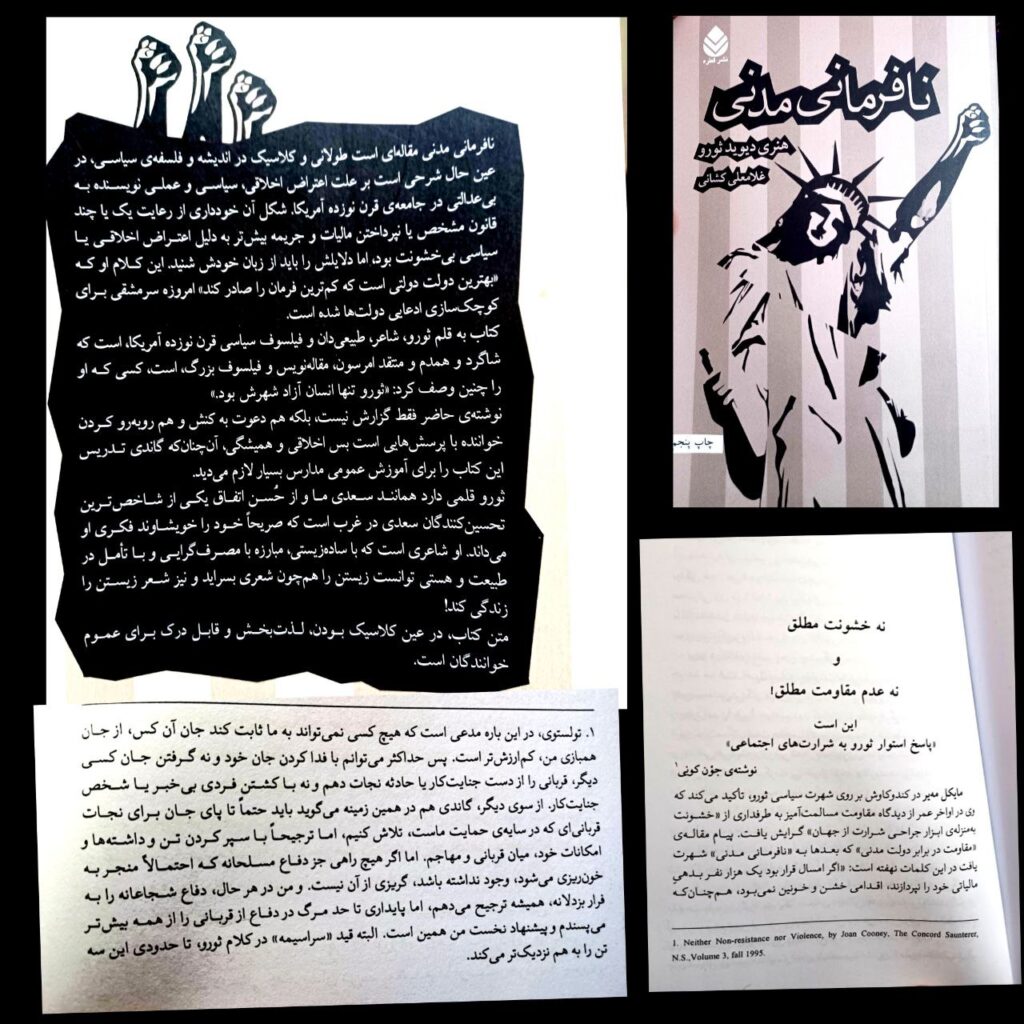 نافرمانی مدنی مقاله‌ای است طولانی و کلاسیک در اندیشه و فلسفه‌ی سیاسی، در
عین حال شرحی است بر علت اعتراض اخلاقی، سیاسی و عملی نویسنده به
بی‌عدالتی در جامعه‌ی قرن نوزده آمریکا. شکل آن خودداری از رعایت یک یا چند
قانون مشخص یا نپرداختن مالیات و جریمه بیش‌تر به دلیل اعتراض اخلاقی یا
سیاسی بی‌خشونت بود، اما دلایلش را باید از زبان خودش شنید. این کلام او که
«بهترین دولت دولتی است که کم‌ترین فرمان را صادر کند» امروزه سرمشقی برای
کوچک‌سازی ادعایی دولت‌ها شده است.
کتاب به قلم ثورو، شاعر، طبیعی‌دان و فیلسوف سیاسی قرن نوزده آمریکا، است که
شاگرد و همدم و منتقد امرسون، مقاله‌نویس و فیلسوف بزرگ، است، کسی که او
را چنین وصف کرد: «ثورو تنها انسان آزاد شهرش بود.»
نوشته‌ی حاضر فقط گزارش نیست، بلکه هم دعوت به کنش و هم روبه‌رو کردن
خواننده با پرسش‌هایی است بس اخلاقی و همیشگی، آن‌چنان‌که گاندی تدریس
این کتاب را برای آموزش عمومی مدارس بسیار لازم می‌دید.
ثورو قلمی دارد همانند سعدی ما و از حُسن اتفاق یکی از شاخص‌ترین
تحسین‌کنندگان سعدی در غرب است که صریحاً خود را خویشاوند فکری او
می‌داند. او شاعری است که با ساده‌زیستی، مبارزه با مصرف‌گرایی و با تأمل در
طبیعت و هستی توانست زیستن را هم‌چون شعری بسراید و نیز شعر زیستن را
زندگی کند!
متن کتاب، در عین کلاسیک بودن، لذت‌بخش و قابل درک برای عموم
خوانندگان است.
نشر قطره
نافرمانی مدنی
هنری دیوید ثورو
غلامعلی کشانی
چاپ پنجم
نه خشونت مطلق
و
نه عدم مقاومت مطلق!
این است
«پاسخ استوار ثورو به شرارت‌های اجتماعی»
نوشته‌ی جوْن کونی۱
مایکل مه‌یر در کندوکاوش بر روی شهرت سیاسی ثورو، تأکید می‌کند که
وی در اواخر عمر از دیدگاه مقاومت مسالمت‌آمیز به طرفداری از «خشونت
به‌منزله‌ی ابزار جراحی شرارت از جهان» گرایش یافت. پیام مقاله‌ی
«مقاومت در برابر دولت مدنی» که بعدها به «نافرمانی مدنی» شهرت
یافت در این کلمات نهفته است: «اگر امسال قرار بود یک هزار نفر بدهیِ
مالیاتی خود را نپردازند، اقدامی خشن و خونین نمی‌بود، هم‌چنان‌که
1. Neither Non-resistance nor Violence, by Joan Cooney, The Concord Saunterer,
N.S.,Volume 3, fall 1995.
۱. تولستوی، در این باره مدعی است که هیچ کسی نمی‌تواند به ما ثابت کند جان آن کس، از جان
همبازی من، کم‌ارزش‌تر است. پس حداکثر می‌توانم با فدا کردن جان خود و نه گرفتن جان کسی
دیگر، قربانی را از دست جنایت‌کار یا حادثه نجات دهم و نه با کشتن فردی بی‌خبر یا شخص
جنایت‌کار. از سوی دیگر، گاندی هم در همین زمینه می‌گوید باید حتماً تا پای جان برای نجات
قربانی‌ای که در سایه‌ی حمایت ماست، تلاش کنیم، اما ترجیحاً با سپر کردن تن و داشته‌ها و
امکانات خود، میان قربانی و مهاجم. اما اگر هیچ راهی جز دفاع مسلحانه که احتمالاً منجر به
خون‌ریزی می‌شود، وجود نداشته باشد، گریزی از آن نیست. و من در هر حال، دفاع شجاعانه را به
فرار بزدلانه، همیشه ترجیح می‌دهم، اما پایداری تا حد مرگ در دفاع از قربانی را از همه بیش‌تر
می‌پسندم و پیشنهاد نخست من همین است. البته قید «سراسیمه» در کلام ثورو، تا حدودی این سه
تن را به هم نزدیک‌تر می‌کند.